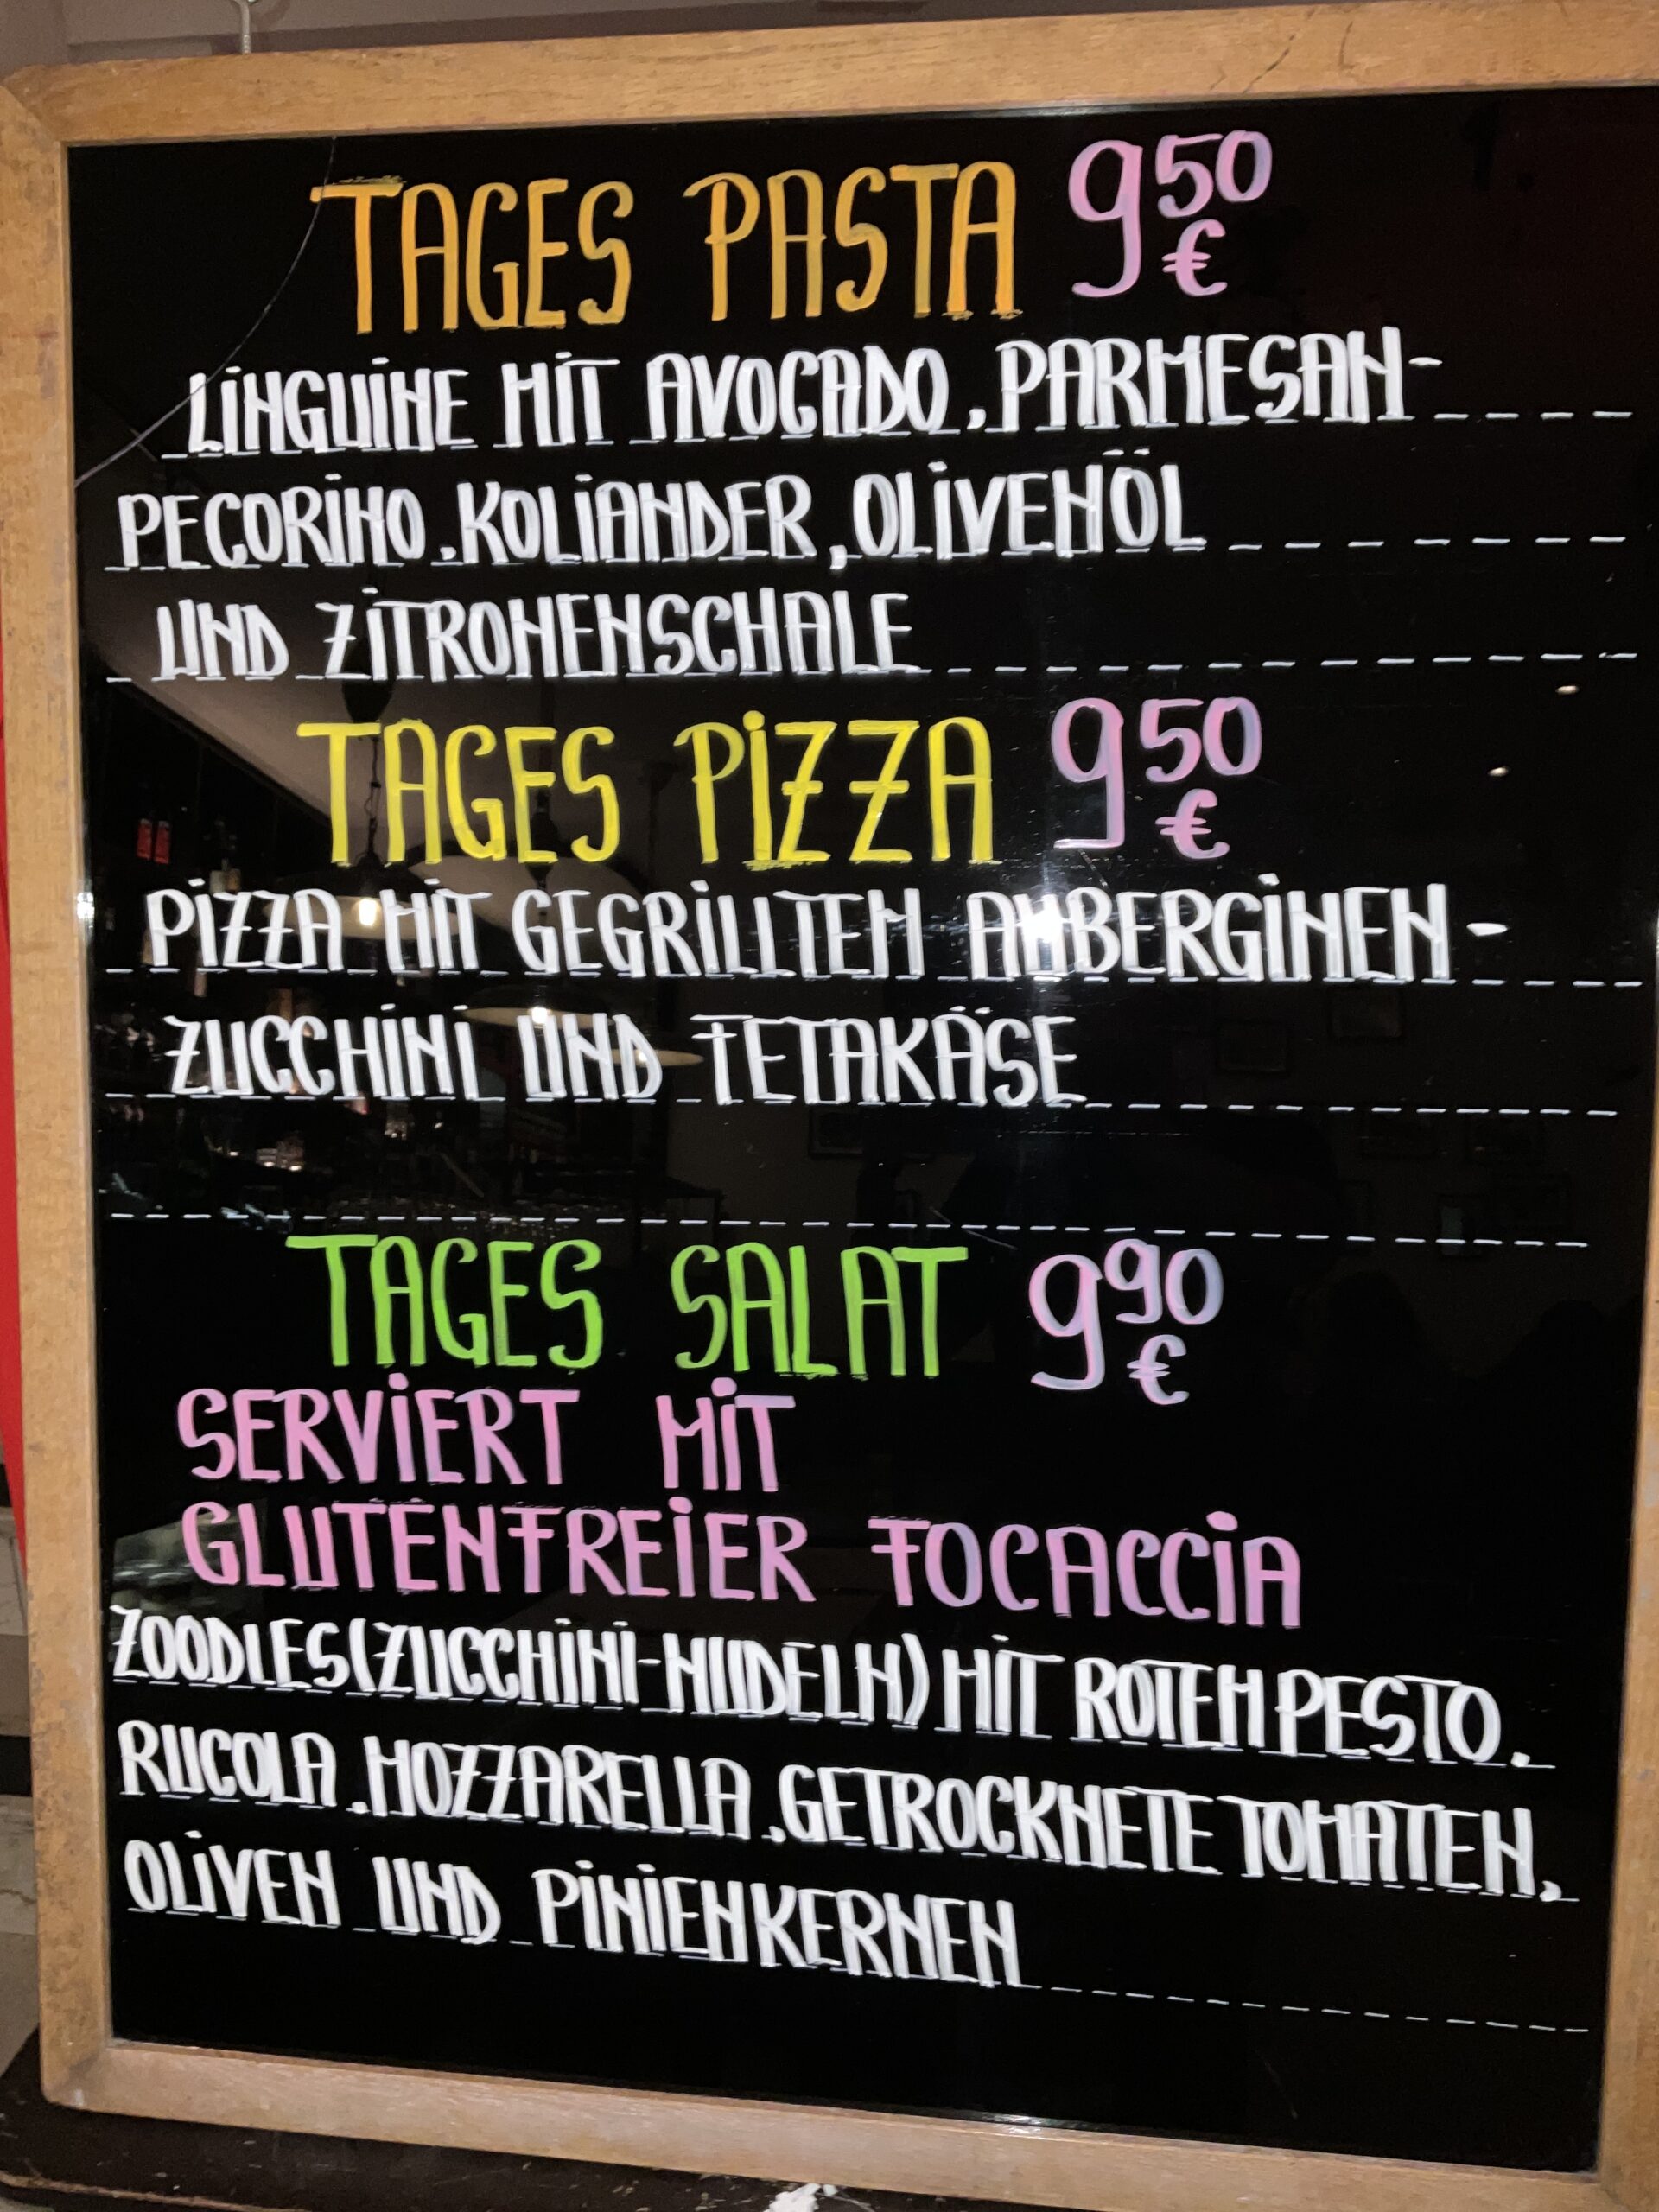 TAGES PASTA 950 €
LINGUINE MIT AVOCADO, PARMESAN-
PECORINO, KOLIANDER, OLIVENÖL
UND ZITRONENSCHALE
TAGES PIZZA 950 €
PIZZA MIT GEGRILLTEN AUBERGINEN-
ZUCCHINI UND FETAKÄSE
TAGES SALAT 990 €
SERVIERT MIT
GLUTENFREIER FOCACCIA
ZOODLES(ZUCCHINI-NUDELN) MIT ROTEM PESTO,
RUCOLA, MOZZARELLA, GETROCKNETE TOMATEN,
OLIVEN UND PINIENKERNEN